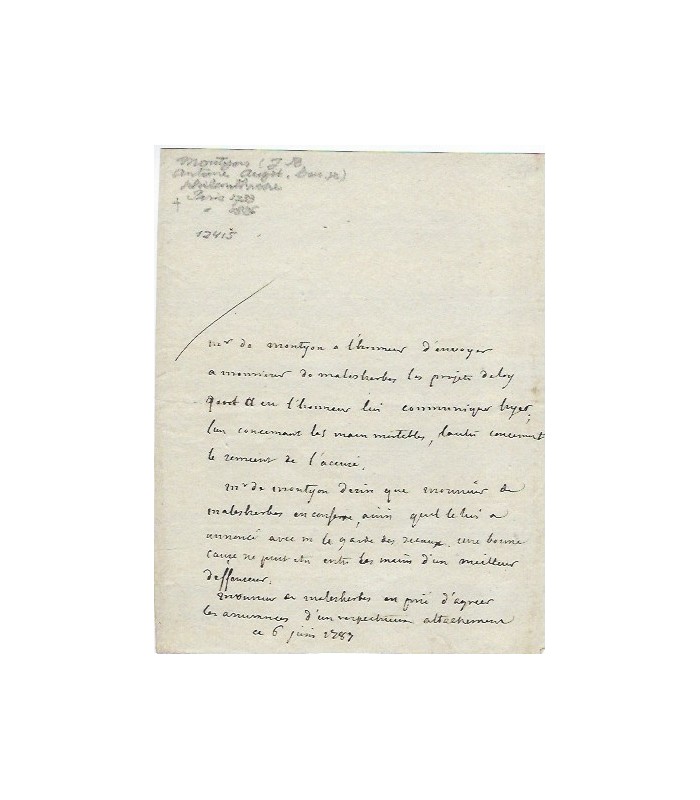 Montyon (J B
Antoine Auget, Bon de)
philanthrope
Paris 1733
12415
mr de montyon a l'honneur d'envoyer
a monsieur de malesherbes les projets de loy
quil a eu l'honneur lui communiquer hyer,
l'un concernant les main mortables, l'autre concernant
le serment de l'accusé.
mr de montyon desire que monsieur de
malesherbes en confere, ainsi quil le lui a
annoncé avec m le garde des sceaux. une bonne
cause ne peut etre entre les mains d'un meilleur
deffenseur.
monsieur de malesherbes est prié d'agreer
les assurances d'un respectueux attachement
ce 6 juin 1787